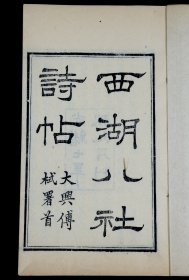 西湖八社
詩帖
大興傅
栻署首